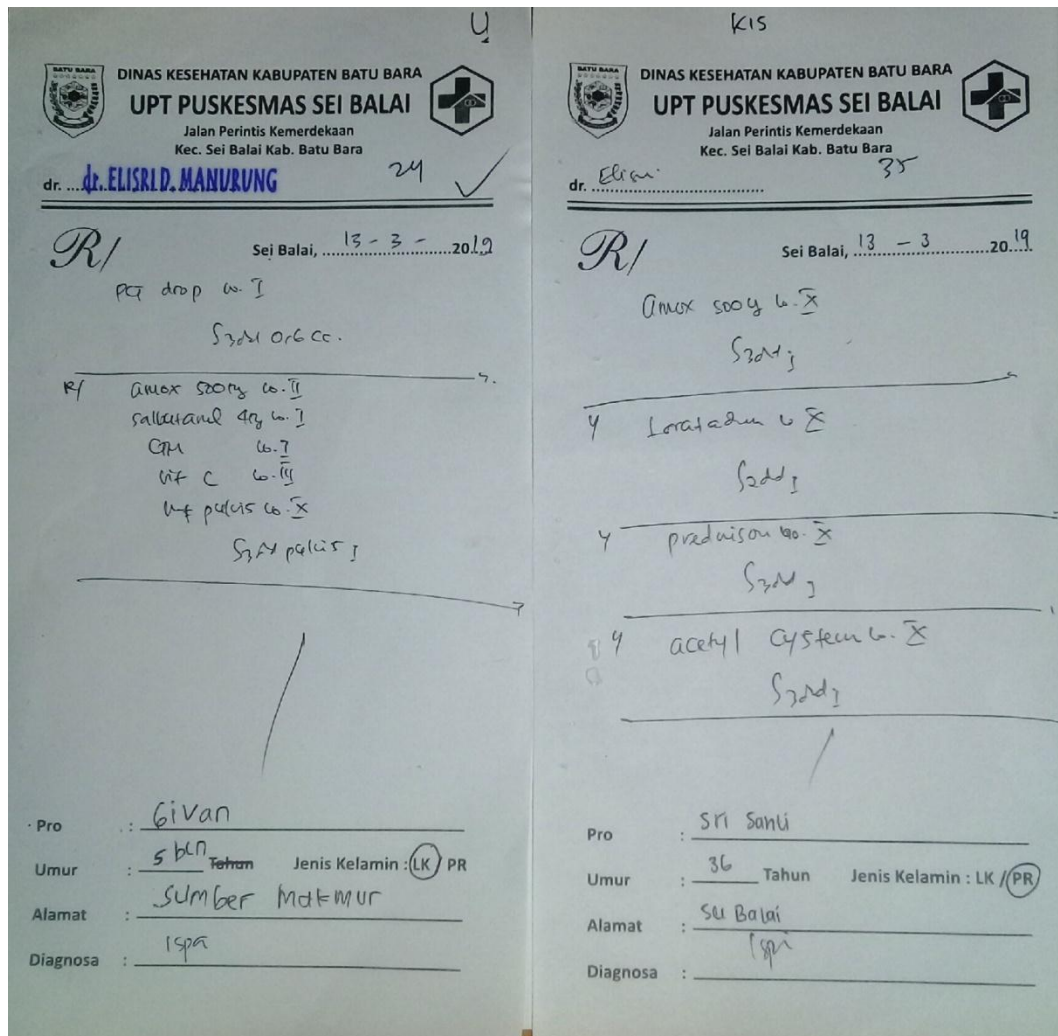 U
BATU BARA
DINAS KESEHATAN KABUPATEN BATU BARA
UPT PUSKESMAS SEI BALAI
Jalan Perintis Kemerdekaan
Kec. Sei Balai Kab. Batu Bara
24
dr. ....dr. ELISRI D. MANURUNG
R/
Sei Balai, 13 - 3 - 2019
PCT drop no. I
S3dd 0,6 cc.
R/ amox 500mg no. II
salbutamol 4mg no. I
CTM no. I
vit C no. III
mf pulvis no. X
S3dd pulvis I
Pro : Givan
Umur : 5 bln Tahun Jenis Kelamin : LK / PR
Alamat : Sumber Makmur
Diagnosa : Ispa
KIS
BATU BARA
DINAS KESEHATAN KABUPATEN BATU BARA
UPT PUSKESMAS SEI BALAI
Jalan Perintis Kemerdekaan
Kec. Sei Balai Kab. Batu Bara
35
dr. Elisri
R/
Sei Balai, 13 - 3 2019
amox 500 no. X
S3dd I
Loratadin no X
S2dd I
prednison no. X
S3dd I
acetyl cystein no. X
S3dd I
Pro : Sri Santi
Umur : 36 Tahun Jenis Kelamin : LK / PR
Alamat : Sei Balai
Diagnosa : Ispa